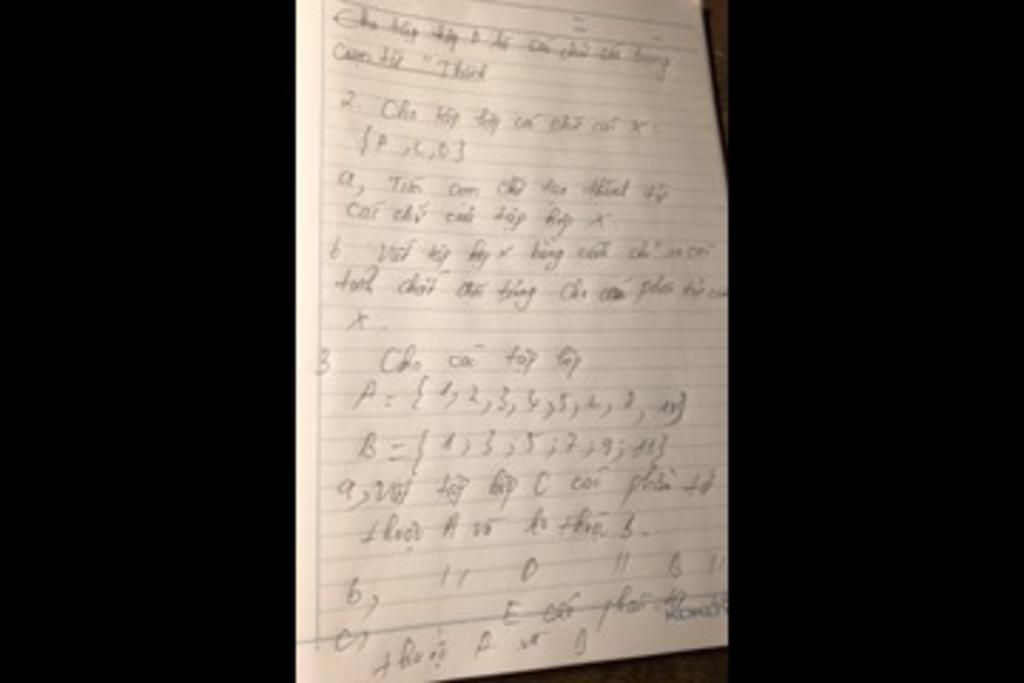 Cho tập hợp A là các chữ cái trong
cụm từ "Thành
2. Cho tập hợp các chữ cái X:
{A, C, O}
a, Tìm cụm chữ tạo thành từ
các chữ của tập hợp X
b Viết tập hợp X bằng cách chỉ ra các
tính chất đặc trưng cho các phần tử của
X.
3 Cho các tập hợp
A = {1, 2, 3, 4, 5, 8, 10}
B = {1; 3; 5; 7; 9; 11}
a, Viết tập hợp C các phần tử
thuộc A và ko thuộc B.
b, // D // B //
c) E các phần tử
thuộc A và B